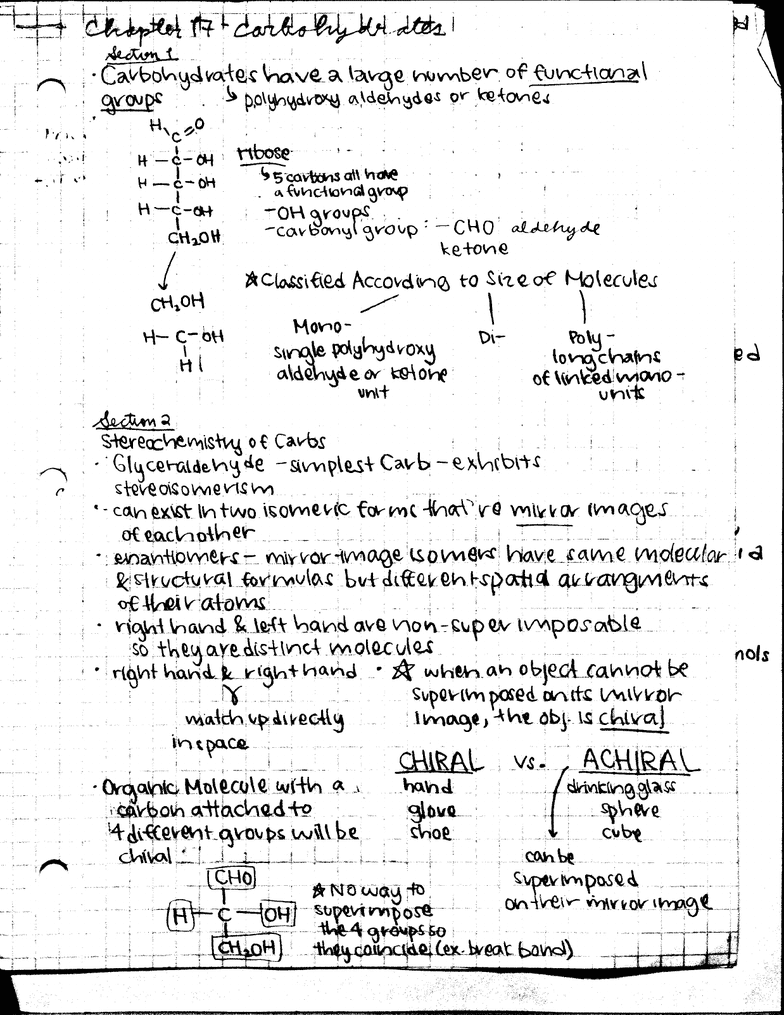 Chapter 17 - Carbohydrates
Section 1
· Carbohydrates have a large number of functional
groups ↳ polyhydroxy aldehydes or ketones
H
C=O
H — C — OH
H — C — OH
H — C — OH
CH₂OH
ribose
↳ 5 carbons all have
a functional group
- OH groups
- carbonyl group: — CHO aldehyde
ketone
CH₂OH
H — C — OH
H
☆ Classified According to Size of Molecules
Mono-
single polyhydroxy
aldehyde or ketone
unit
Di-
Poly-
long chains
of linked mono-
units
ed
Section 2
Stereochemistry of Carbs
· Glyceraldehyde - simplest Carb - exhibits
stereoisomerism
· - can exist in two isomeric forms that're mirror images
of each other
· enantiomers - mirror-image isomers have same molecular
& structural formulas but different spatial arrangments
of their atoms
· right hand & left hand are non-super imposable
so they are distinct molecules
nols
· right hand & right hand
match up directly
in space
· ☆ when an object cannot be
superimposed on its mirror
image, the obj. is chiral
CHIRAL vs. ACHIRAL
hand
glove
shoe
drinking glass
sphere
cube
can be
superimposed
on their mirror image
· Organic Molecule with a
carbon attached to
4 different groups will be
chiral:
CHO
H — C — OH
CH₂OH
☆ No way to
superimpose
the 4 groups so
they coincide (ex. break bond)